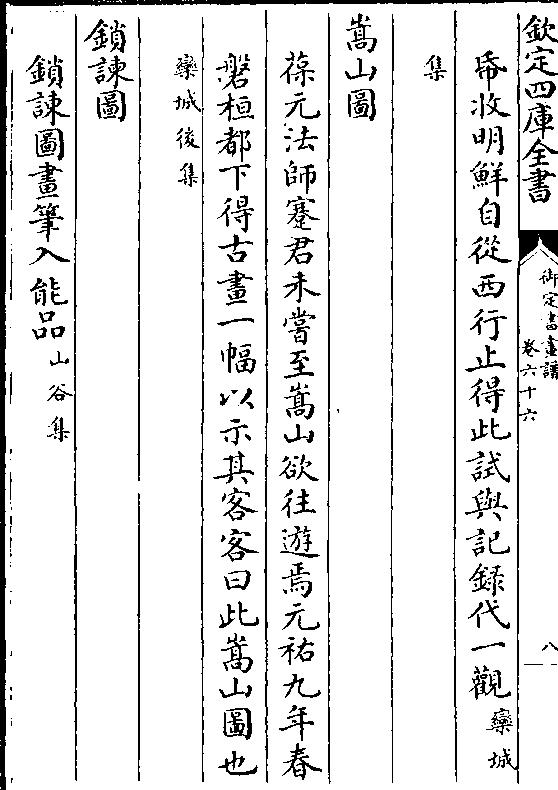 欽定四庫全書
御定書畫譜
卷六十六
八
帋收明鮮自從西行止得此試與記録代一觀欒城
集
嵩山圖
葆元法師蹇君未嘗至嵩山欲往遊焉元祐九年春
磐桓都下得古畫一幅以示其客客曰此嵩山圖也
欒城後集
鎖諫圖
鎖諫圖畫筆入能品山谷集